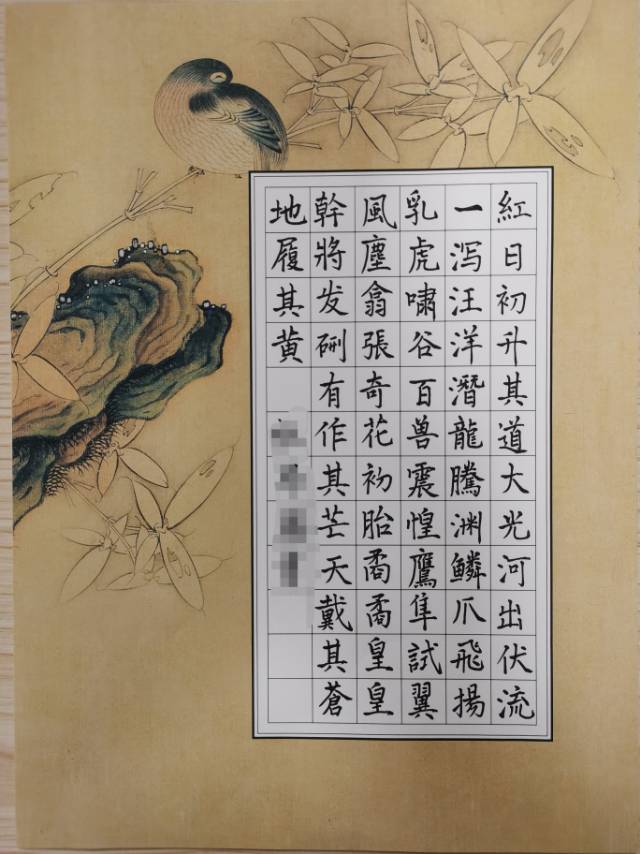 紅日初升其道大光河出伏流
一泻汪洋潛龍騰渊鳞爪飛揚
乳虎嘯谷百兽震惶鷹隼試翼
風塵翕張奇花初胎矞矞皇皇
幹將发硎有作其芒天戴其蒼
地履其黄